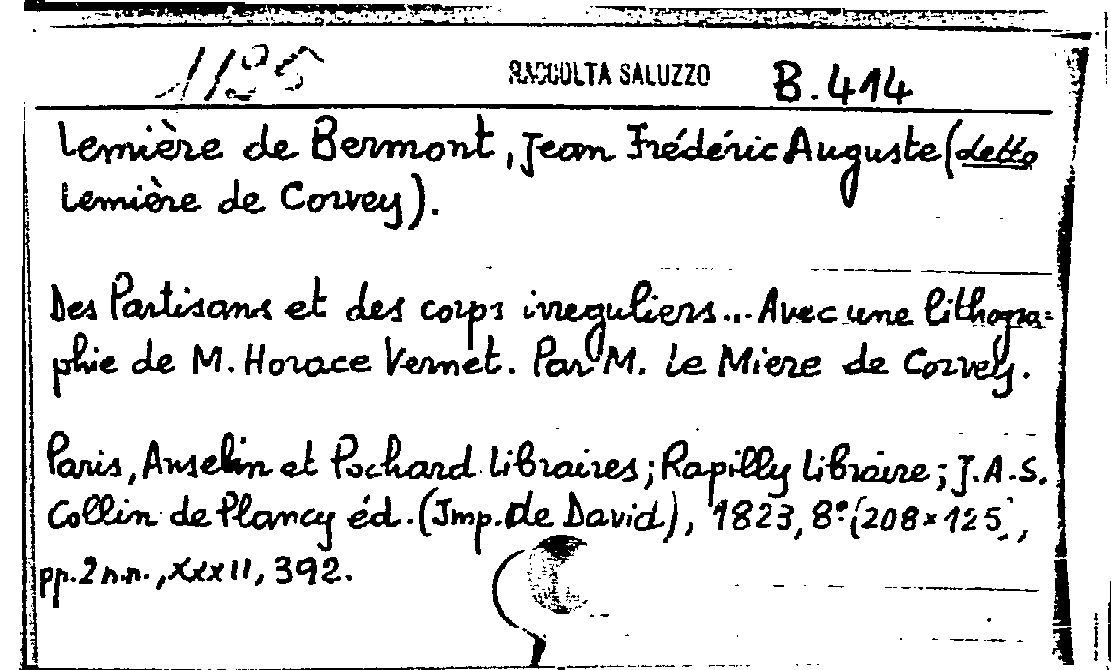 1195 RACCOLTA SALUZZO B.414
Lemière de Bermont, Jean Frédéric Auguste (detto
Lemière de Corvey).
Des Partisans et des corps irreguliers... Avec une lithogra-
phie de M. Horace Vernet. Par M. Le Miere de Corvey.
Paris, Anselin et Pochard Libraires; Rapilly Libraire; J.A.S.
Collin de Plancy éd. (Imp. de David), 1823, 8° (208×125),
pp. 2 n.n., XXXII, 392.